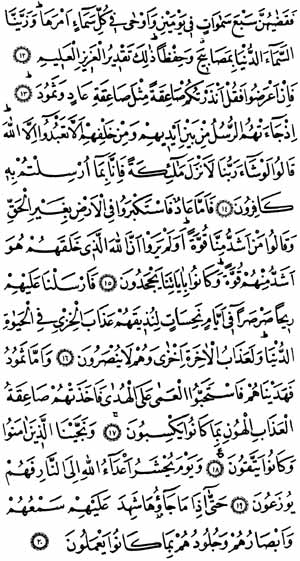 فَقَضٰهُنَّ سَبْعَ سَمٰوَاتٍ فِيْ يَوْمَيْنِ وَاَوْحٰى فِيْ كُلِّ سَمَآءٍ اَمْرَهَا ۭ وَزَيَّنَّا
السَّمَآءَ الدُّنْيَا بِمَصَابِيْحَ ڰ وَحِفْظًا ۭ ذٰلِكَ تَقْدِيْرُ الْعَزِيْزِ الْعَلِيْمِ ۝۱۲
فَاِنْ اَعْرَضُوْا فَقُلْ اَنْذَرْتُكُمْ صٰعِقَةً مِّثْلَ صٰعِقَةِ عَادٍ وَّثَمُوْدَ ۝۱۳
اِذْ جَآءَتْهُمُ الرُّسُلُ مِنْۢ بَيْنِ اَيْدِيْهِمْ وَمِنْ خَلْفِهِمْ اَلَّا تَعْبُدُوْٓا اِلَّا اللّٰهَ ۭ
قَالُوْا لَوْ شَآءَ رَبُّنَا لَاَنْزَلَ مَلٰٓئِكَةً فَاِنَّا بِمَآ اُرْسِلْتُمْ بِهٖ
كٰفِرُوْنَ ۝۱۴ فَاَمَّا عَادٌ فَاسْتَكْبَرُوْا فِي الْاَرْضِ بِغَيْرِ الْحَقِّ
وَقَالُوْا مَنْ اَشَدُّ مِنَّا قُوَّةً ۭ اَوَلَمْ يَرَوْا اَنَّ اللّٰهَ الَّذِيْ خَلَقَهُمْ هُوَ
اَشَدُّ مِنْهُمْ قُوَّةً ۭ وَكَانُوْا بِاٰيٰتِنَا يَجْحَدُوْنَ ۝۱۵ فَاَرْسَلْنَا عَلَيْهِمْ
رِيْحًا صَرْصَرًا فِيْٓ اَيَّامٍ نَّحِسَاتٍ لِّنُذِيْقَهُمْ عَذَابَ الْخِزْيِ فِي الْحَيٰوةِ
الدُّنْيَا ۭ وَلَعَذَابُ الْاٰخِرَةِ اَخْزٰى وَهُمْ لَا يُنْصَرُوْنَ ۝۱۶ وَاَمَّا ثَمُوْدُ
فَهَدَيْنٰهُمْ فَاسْتَحَبُّوا الْعَمٰى عَلَى الْهُدٰى فَاَخَذَتْهُمْ صٰعِقَةُ
الْعَذَابِ الْهُوْنِ بِمَا كَانُوْا يَكْسِبُوْنَ ۝۱۷ وَنَجَّيْنَا الَّذِيْنَ اٰمَنُوْا
وَكَانُوْا يَتَّقُوْنَ ۝۱۸ وَيَوْمَ يُحْشَرُ اَعْدَآءُ اللّٰهِ اِلَى النَّارِ فَهُمْ
يُوْزَعُوْنَ ۝۱۹ حَتّٰىٓ اِذَا مَا جَآءُوْهَا شَهِدَ عَلَيْهِمْ سَمْعُهُمْ
وَاَبْصَارُهُمْ وَجُلُوْدُهُمْ بِمَا كَانُوْا يَعْمَلُوْنَ ۝۲۰